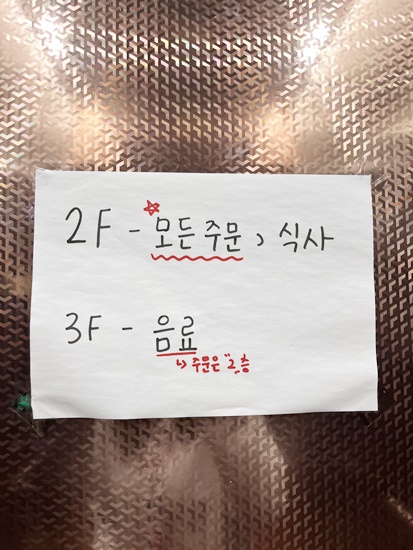 2F - 모든 주문, 식사
3F - 음료
↳ 주문은 "2"층